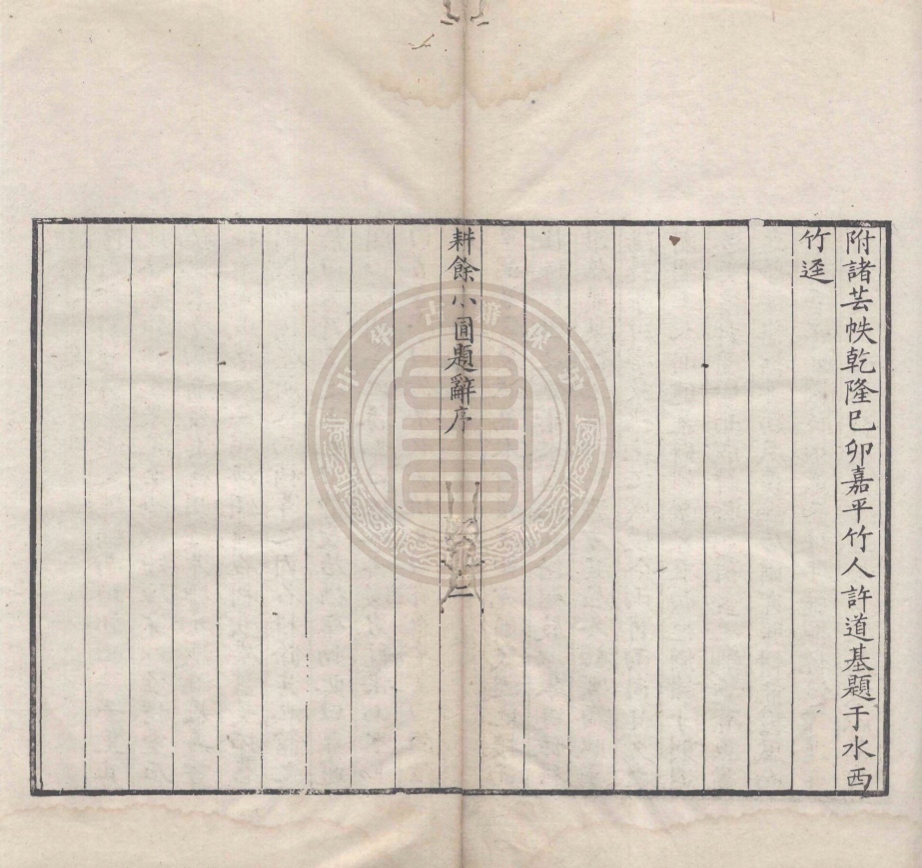 附諸芸帙乾隆己卯嘉平竹人許道基題于水西
竹逕
耕餘小圃題辭序
二